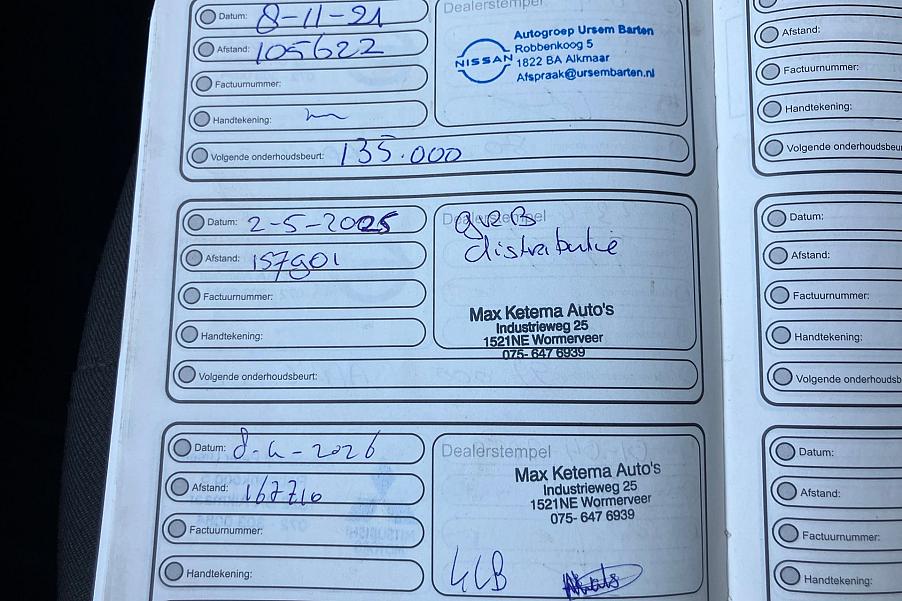 Datum: 8-11-21
Afstand: 105622
Factuurnummer:
Handtekening:
Volgende onderhoudsbeurt: 135.000
Dealerstempel
NISSAN
Autogroep Ursem Barten
Robbenkoog 5
1822 BA Alkmaar
Afspraak@ursembarten.nl
Datum: 2-5-2025
Afstand: 157901
Factuurnummer:
Handtekening:
Volgende onderhoudsbeurt:
Dealerstempel
distributie
Max Ketema Auto's
Industrieweg 25
1521NE Wormerveer
075- 647 6939
Datum: 8-4-2026
Afstand: 167710
Factuurnummer:
Handtekening:
Dealerstempel
Max Ketema Auto's
Industrieweg 25
1521NE Wormerveer
075- 647 6939
Afstand:
Factuurnummer:
Handtekening:
Volgende
Datum:
Afstand:
Factuurnummer:
Handtekening:
Volgende
Datum:
Afstand:
Factuurnummer:
Handtekening: